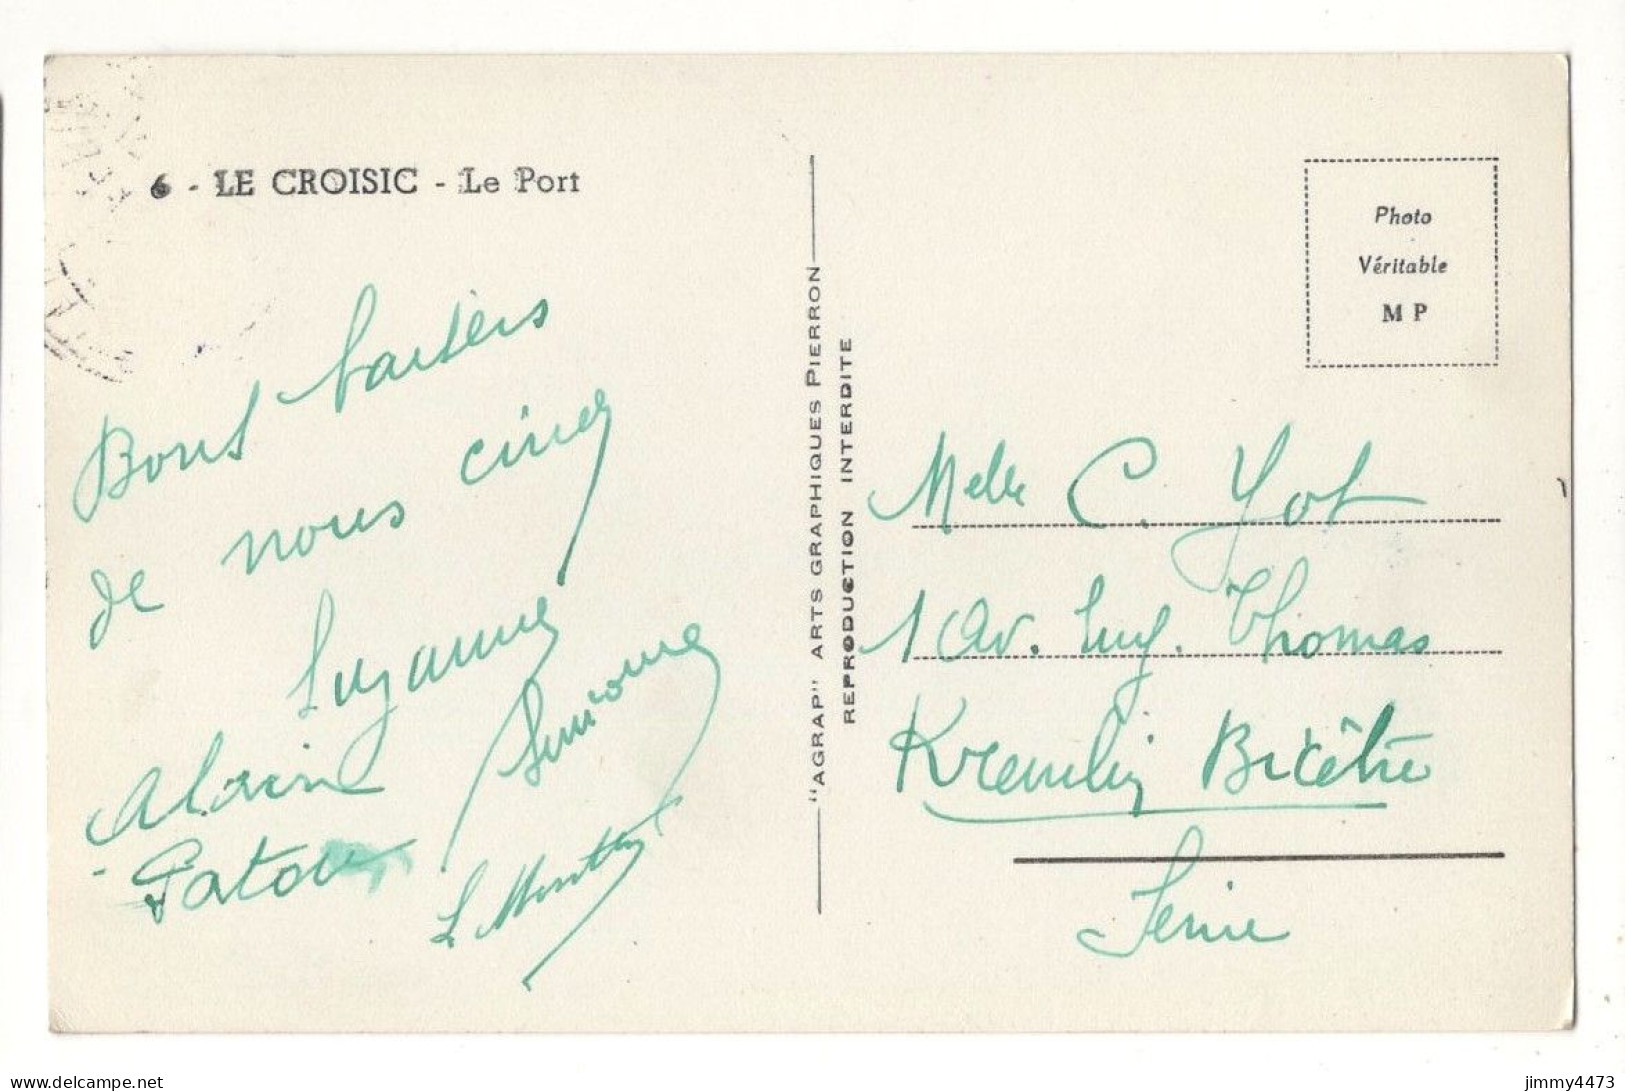 6 - LE CROISIC - Le Port
Bons baisers
de nous cinq
Suzanne
Alain
Patou
"AGRAP" ARTS GRAPHIQUES PIERRON
REPRODUCTION INTERDITE
Photo
Véritable
M P
Melle C. Yot
1 Av. Eug. Thomas
Kremlin Bicêtre
Seine
delcampe.net
jimmy4473